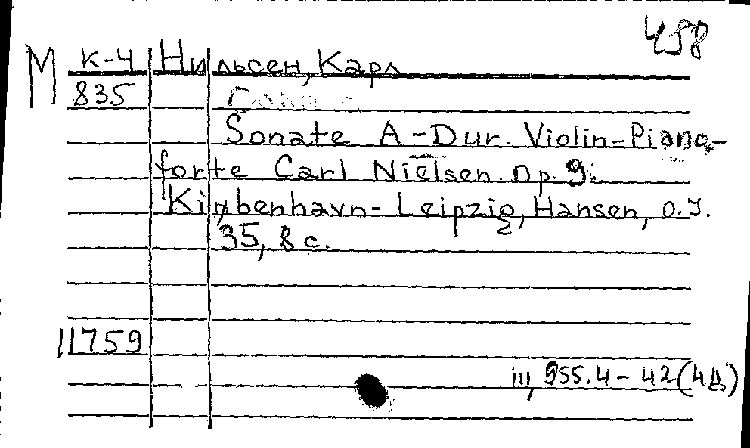 458
М К-4 Нильсен, Карл
835
Sonate A-Dur. Violin-Piano-
forte Carl Nielsen. Op. 9.
Kinbenhavn-Leipzig, Hansen, o.J.
35, 8 c.
11759
III, 955.4-42(4Д)